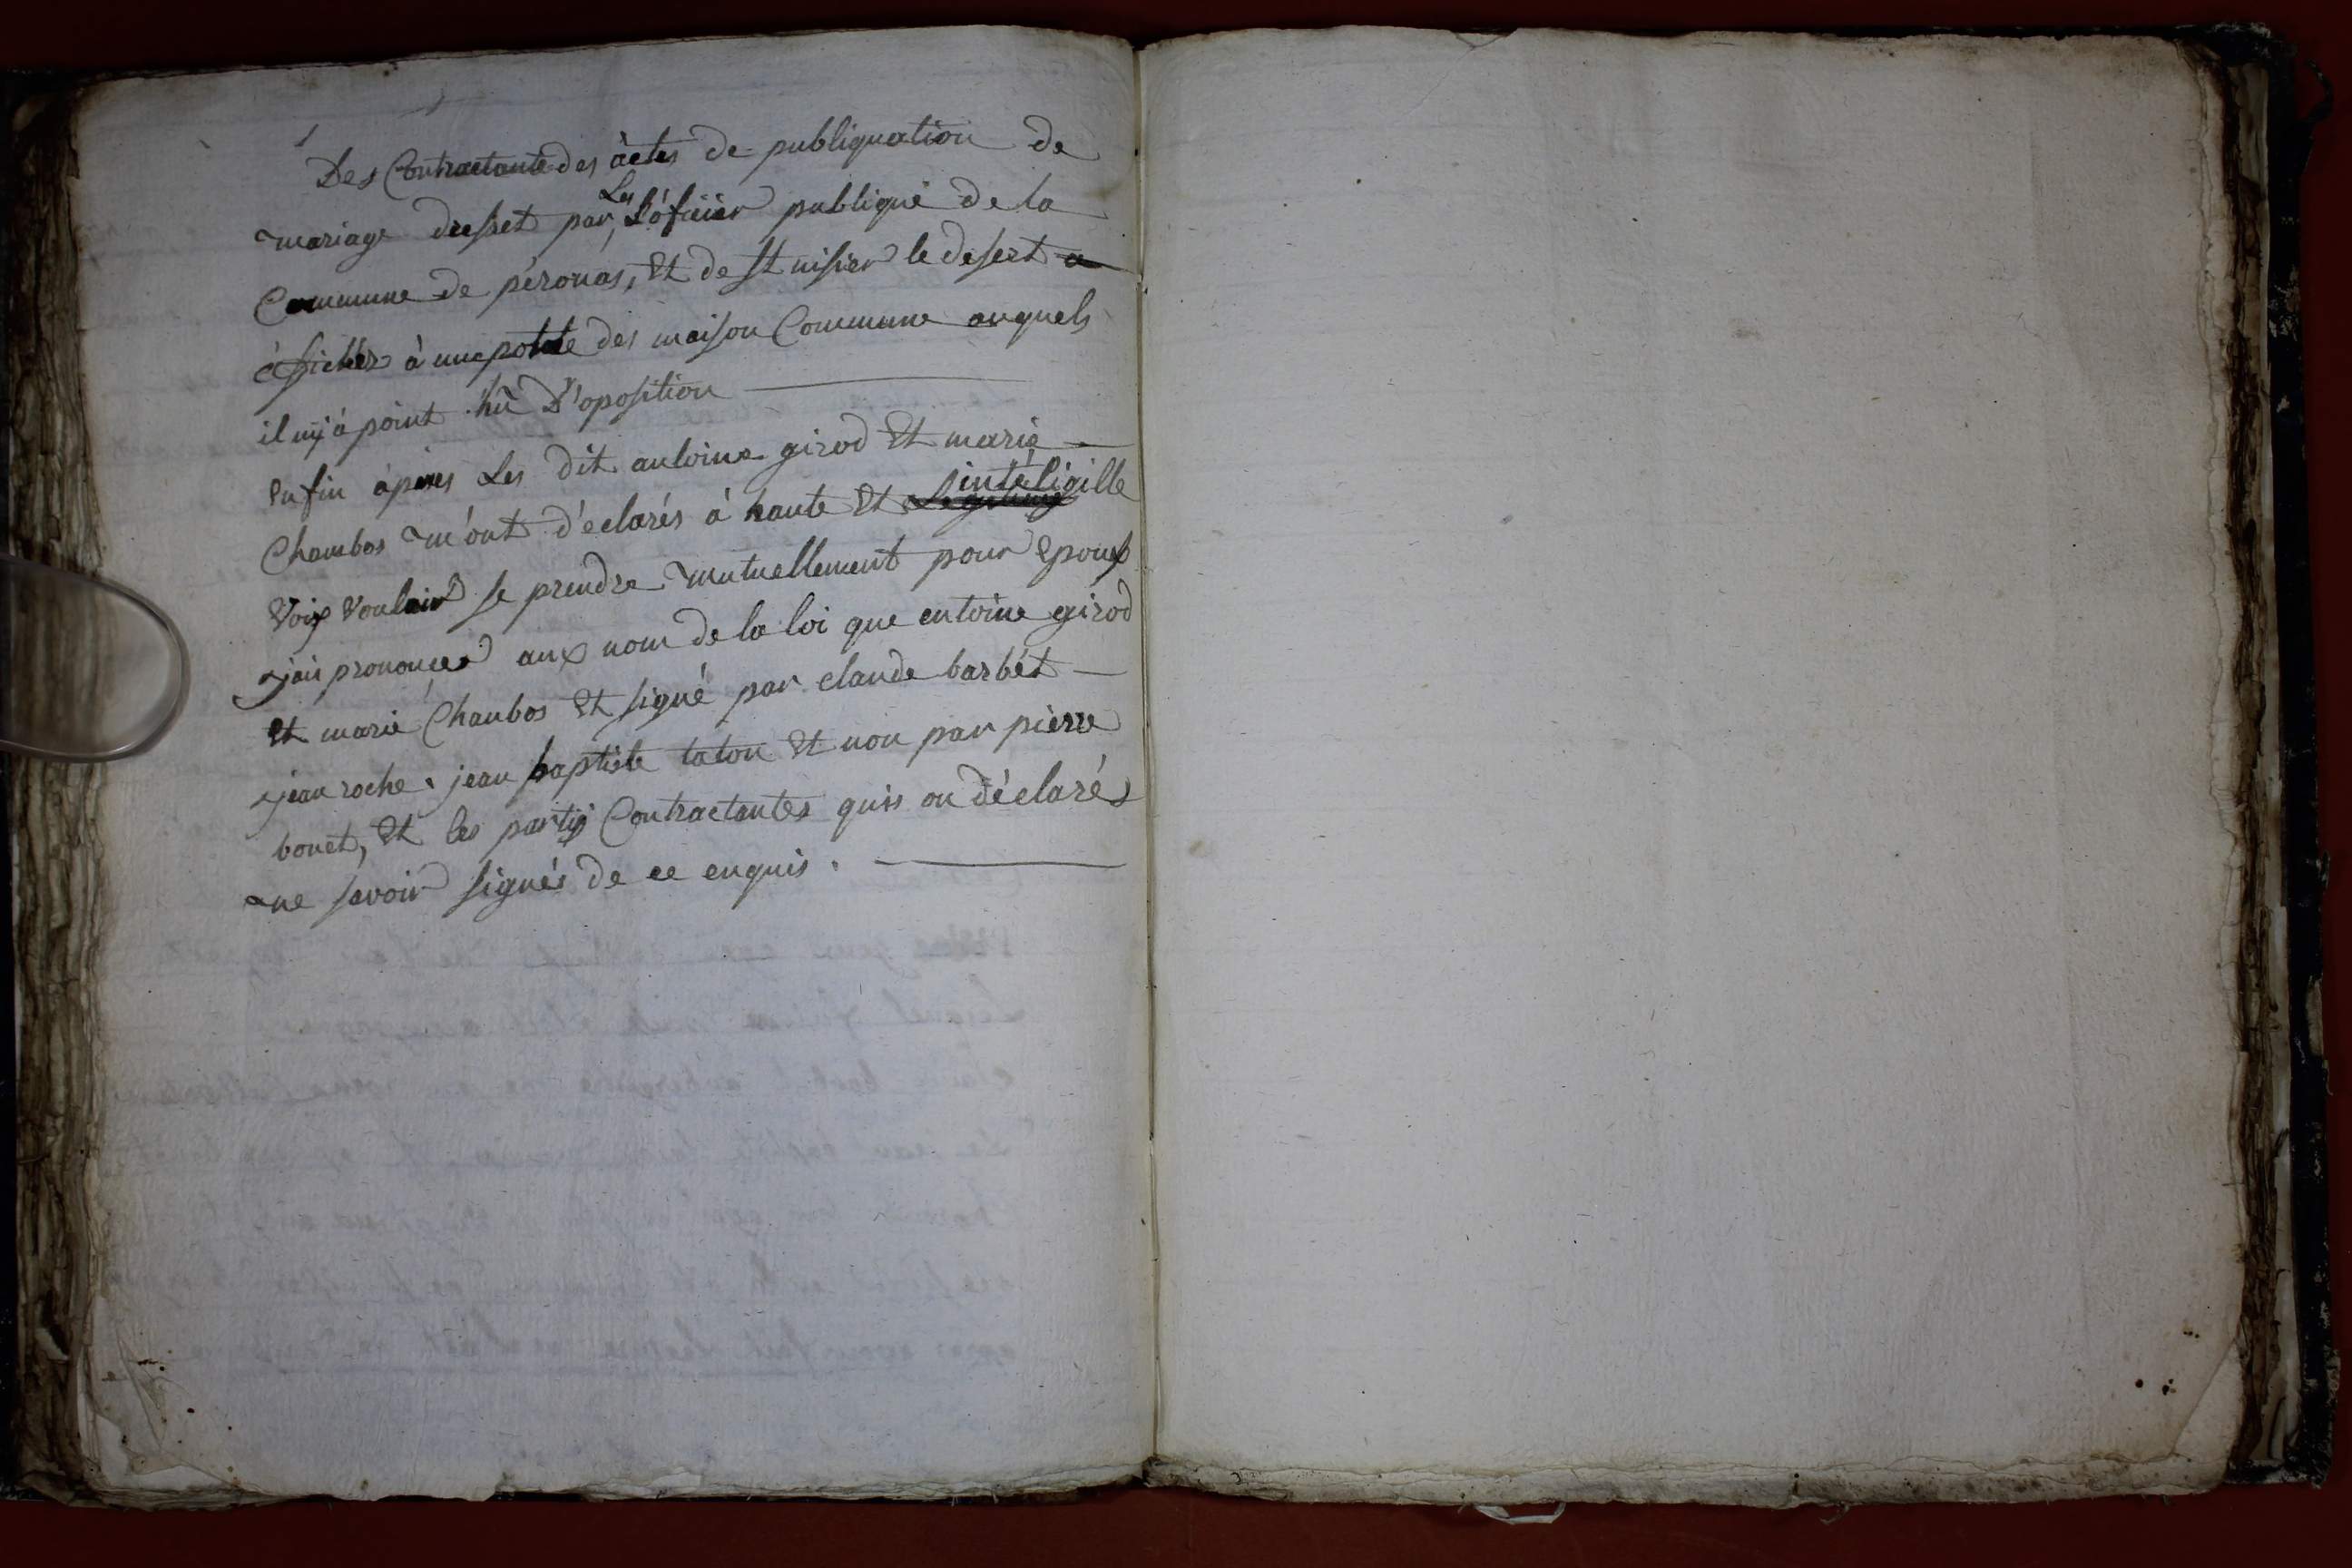 Des Contractante des àctes de publiquation de
mariage dresset par Les L'óficiér publique de la
Commune de péronas, Et de St nisier le desert a
àffichér à une potrte des maison Commune auquels
il ny à point hû D'oposition
Enfin àpres Les dit antoine girod Et marie
Chambos m'ont d'éclarés à haute Et intéligille
Voix Vouloir se prendre mutuellement pour Epoux
jai prononcer aux nom de la loi que entoine girod
Et marie Chanbos Et signé par claude barbét
jean roche. jean baptiste taton Et non par pièrre
bouet, Et les partys Contractantes quis on déclarés
ne savoir signés de ce enquis.